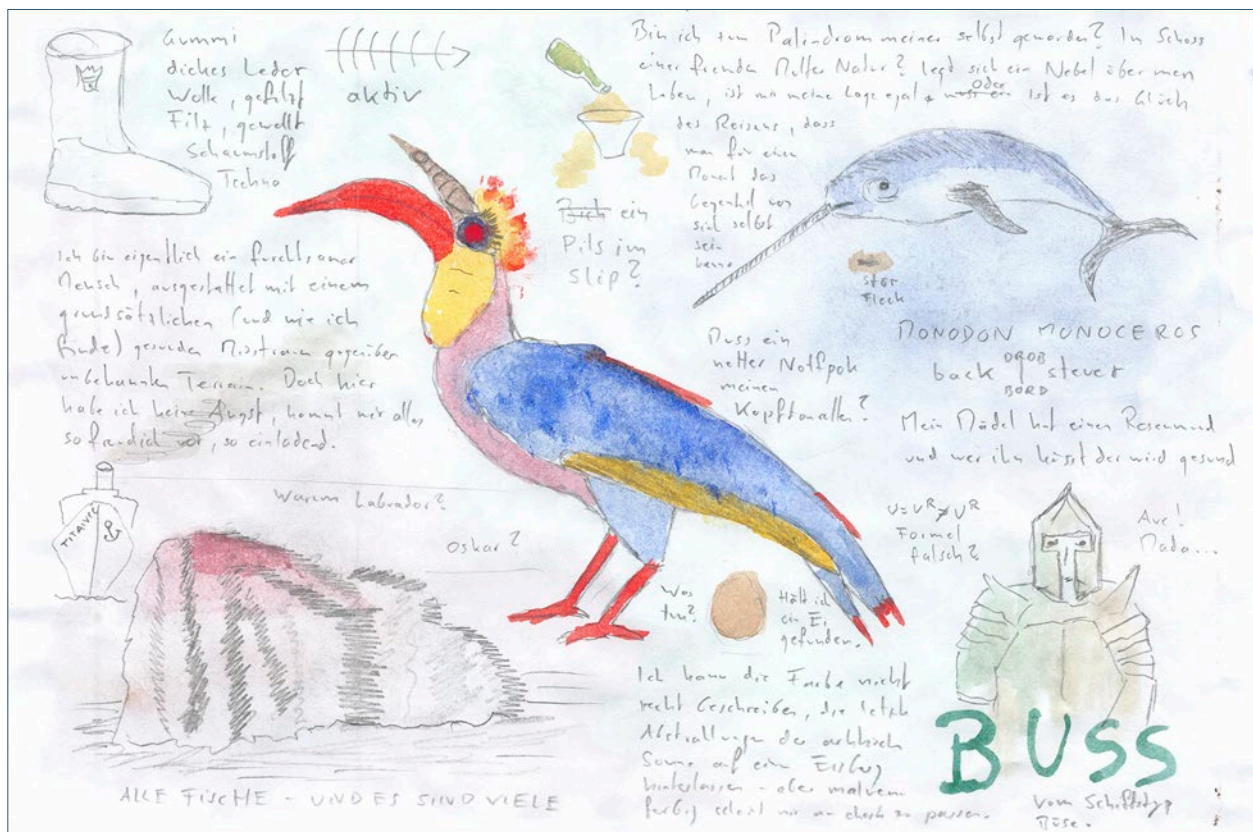 Gummi
dickes Leder
Wolle, gefilzt
Filz, gewollt
Schaumstoff
Techno
aktiv
Bin ich zum Palindrom meiner selbst geworden? Im Schoss
einer fremden Mutter Natur? Legt sich ein Nebel über mein
Leben, ist mir meine Lage egal oder ist es das Glück
des Reisens, dass
man für einen
Monat das
Gegenteil von
sich selbst
sein
kann
Bich ein
Pils im
Slip?
Ich bin eigentlich ein furchtsamer
Mensch, ausgestattet mit einem
grundsätzlichen (und wie ich
finde) gesunden Misstrauen gegenüber
unbekanntem Terrain. Doch hier
habe ich keine Angst, kommt mir alles
so freundlich vor, so einladend.
stör
Fleck
MONODON MONOCEROS
DROB
back steuer
BORD
Muss ein
netter
meinen
Mein Mädel hat einen Rosenmund
und wer ihn küsst der wird gesund
TITANIC
Warum Labrador?
Oskar?
U=U^R≠U^R
Formel
falsch?
Ave!
Mada...
Was
tun?
Hätt ich
ein Ei
gefunden.
Ich kann die Farbe nicht
recht beschreiben, die letzte
Abstrahlungen der arktischen
Sonne auf einem Eisberg
hinterlassen - aber malven
farbig scheint mir am ehesten zu passen.
BUSS
vom Schiffstyp
Büse.
ALLE FISCHE - UND ES SIND VIELE